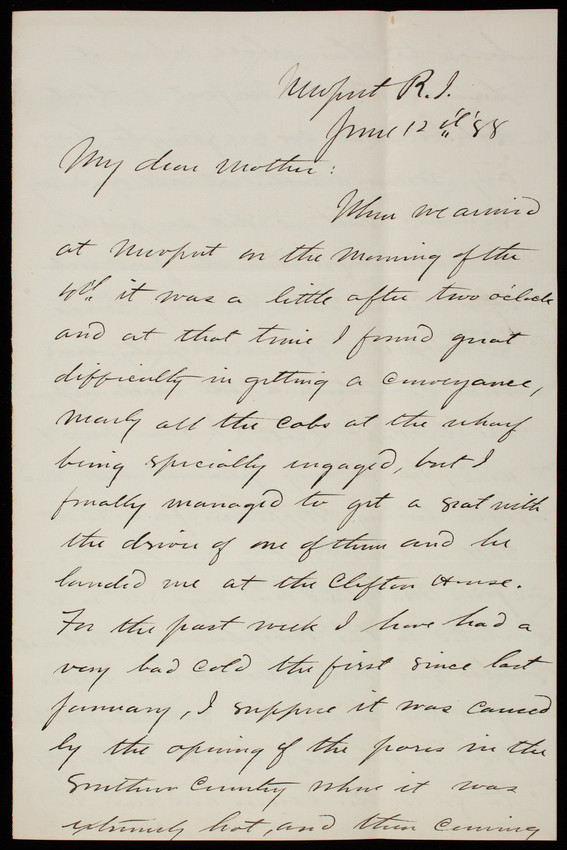 Newport R.I.
June 12th '88
My dear Mother:
When we arrived
at Newport on the morning of the
it was a little after two o'clock
and at that time I found great
difficulty in getting a conveyance,
nearly all the cabs at the wharf
being specially engaged, but I
finally managed to get a seat with
the driver of one of them and he
landed me at the Clifton House.
For the past week I have had a
very bad cold the first since last
January, I suppose it was caused
by the opening of the pores in the
Southern Country where it was
extremely hot, and then coming